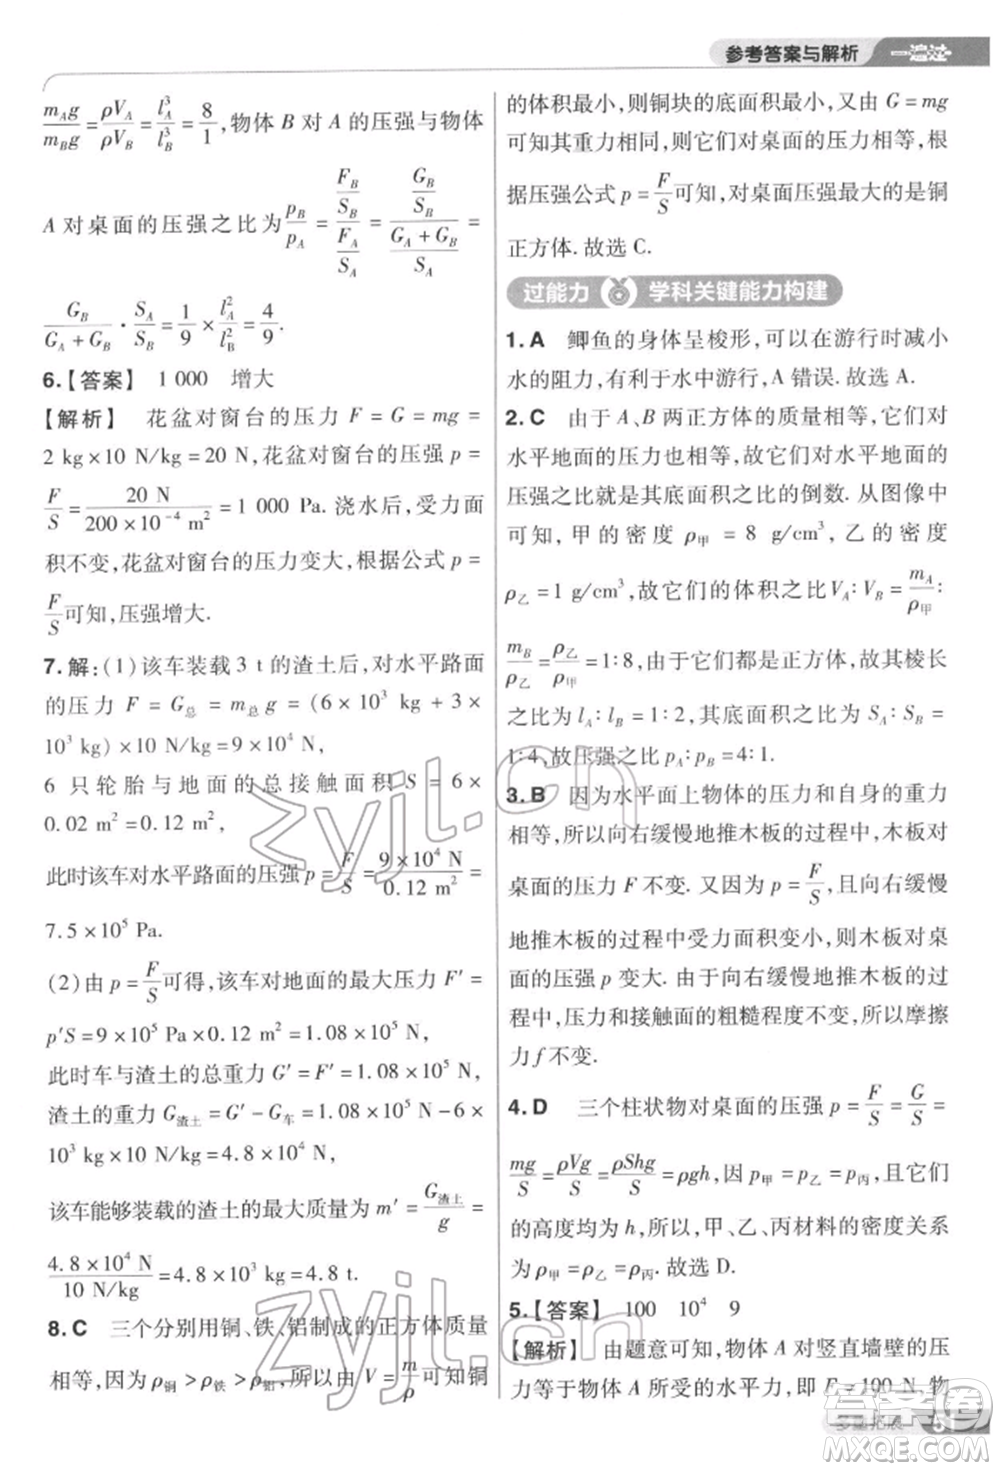 参考答案与解析 一遍过
m_A g/m_B g = ρV_A/ρV_B = l_A³/l_B³ = 8/1，物体 B 对 A 的压强与物体
A 对桌面的压强之比为 p_B/p_A = (F_B/S_B)/(F_A/S_A) = (G_B/S_B)/((G_A+G_B)/S_A) =
G_B/(G_A+G_B)·S_A/S_B = 1/9×l_A²/l_B² = 4/9.
6.【答案】 1 000 增大
【解析】 花盆对窗台的压力 F = G = mg =
2 kg×10 N/kg=20 N,花盆对窗台的压强 p =
F/S = 20 N/(200×10⁻⁴ m²) = 1 000 Pa. 浇水后,受力面
积不变,花盆对窗台的压力变大,根据公式 p =
F/S可知,压强增大.
7.解:(1)该车装载 3 t 的渣土后,对水平路面
的压力 F = G总 = m总 g = (6×10³ kg+3×
10³ kg)×10 N/kg=9×10⁴ N,
6 只轮胎与地面的总接触面积 S = 6×
0.02 m²=0.12 m²,
此时该车对水平路面的压强 p = F/S = 9×10⁴ N/0.12 m² =
7.5×10⁵ Pa.
(2)由 p=F/S可得,该车对地面的最大压力 F′=
p′S=9×10⁵ Pa×0.12 m²=1.08×10⁵ N,
此时车与渣土的总重力 G′=F′=1.08×10⁵ N,
渣土的重力 G渣土=G′-G车=1.08×10⁵ N-6×
10³ kg×10 N/kg=4.8×10⁴ N,
该车能够装载的渣土的最大质量为 m′=G渣土/g=
4.8×10⁴ N/10 N/kg=4.8×10³ kg=4.8 t.
8.C 三个分别用铜、铁、铝制成的正方体质量
相等,因为 ρ铜>ρ铁>ρ铝,所以由 V=m/ρ可知铜
的体积最小,则铜块的底面积最小,又由 G=mg
可知其重力相等,则它们对桌面的压力相等,根
据压强公式 p=F/S可知,对桌面压强最大的是铜
正方体.故选 C.
过能力 学科关键能力构建
1.A 鲫鱼的身体呈梭形,可以在游行时减小
水的阻力,有利于水中游行,A 错误.故选 A.
2.C 由于 A、B 两正方体的质量相等,它们对
水平地面的压力也相等,它们对水平地面的
压强之比就是其底面积之比的倒数.从图像中
可知,甲的密度 ρ甲 = 8 g/cm³,乙的密度
ρ乙=1 g/cm³,故它们的体积之比 V_A∶V_B=m_A/ρ甲∶
m_B/ρ乙=ρ乙/ρ甲=1∶8,由于是正方体,故其棱长
之比为 l_A∶l_B=1∶2,其底面积之比为 S_A∶S_B=
1∶4,故压强之比为 p_A∶p_B=4∶1.
3.B 因为水平面上物体的压力和自身的重力
相等,所以向右缓慢地推木板的过程中,木板对
桌面的压力 F 不变.又因为 p=F/S,且向右缓慢
地推木板的过程中受力面积变小,则木板对桌
面的压强 p 变大.由于向右缓慢地推木板的过
程中,压力和接触面的粗糙程度不变,所以摩擦
力 f 不变.
4.D 三个柱状物对桌面的压强 p=F/S=G/S=
mg/S=ρVg/S=ρShg/S=ρgh,因 p甲=p乙=p丙,且它们
的高度均为 h,故甲、乙、丙材料的密度关系
为 ρ甲=ρ乙=ρ丙.故选 D.
5.【答案】 100 10⁴ 9
【解析】 由题意可知,物体 A 对竖直墙壁的压
力等于物体 A 所受的水平力,即 F=100 N,物
zyjl.cn
zyjl.cn
答案圈
MXQE.COM